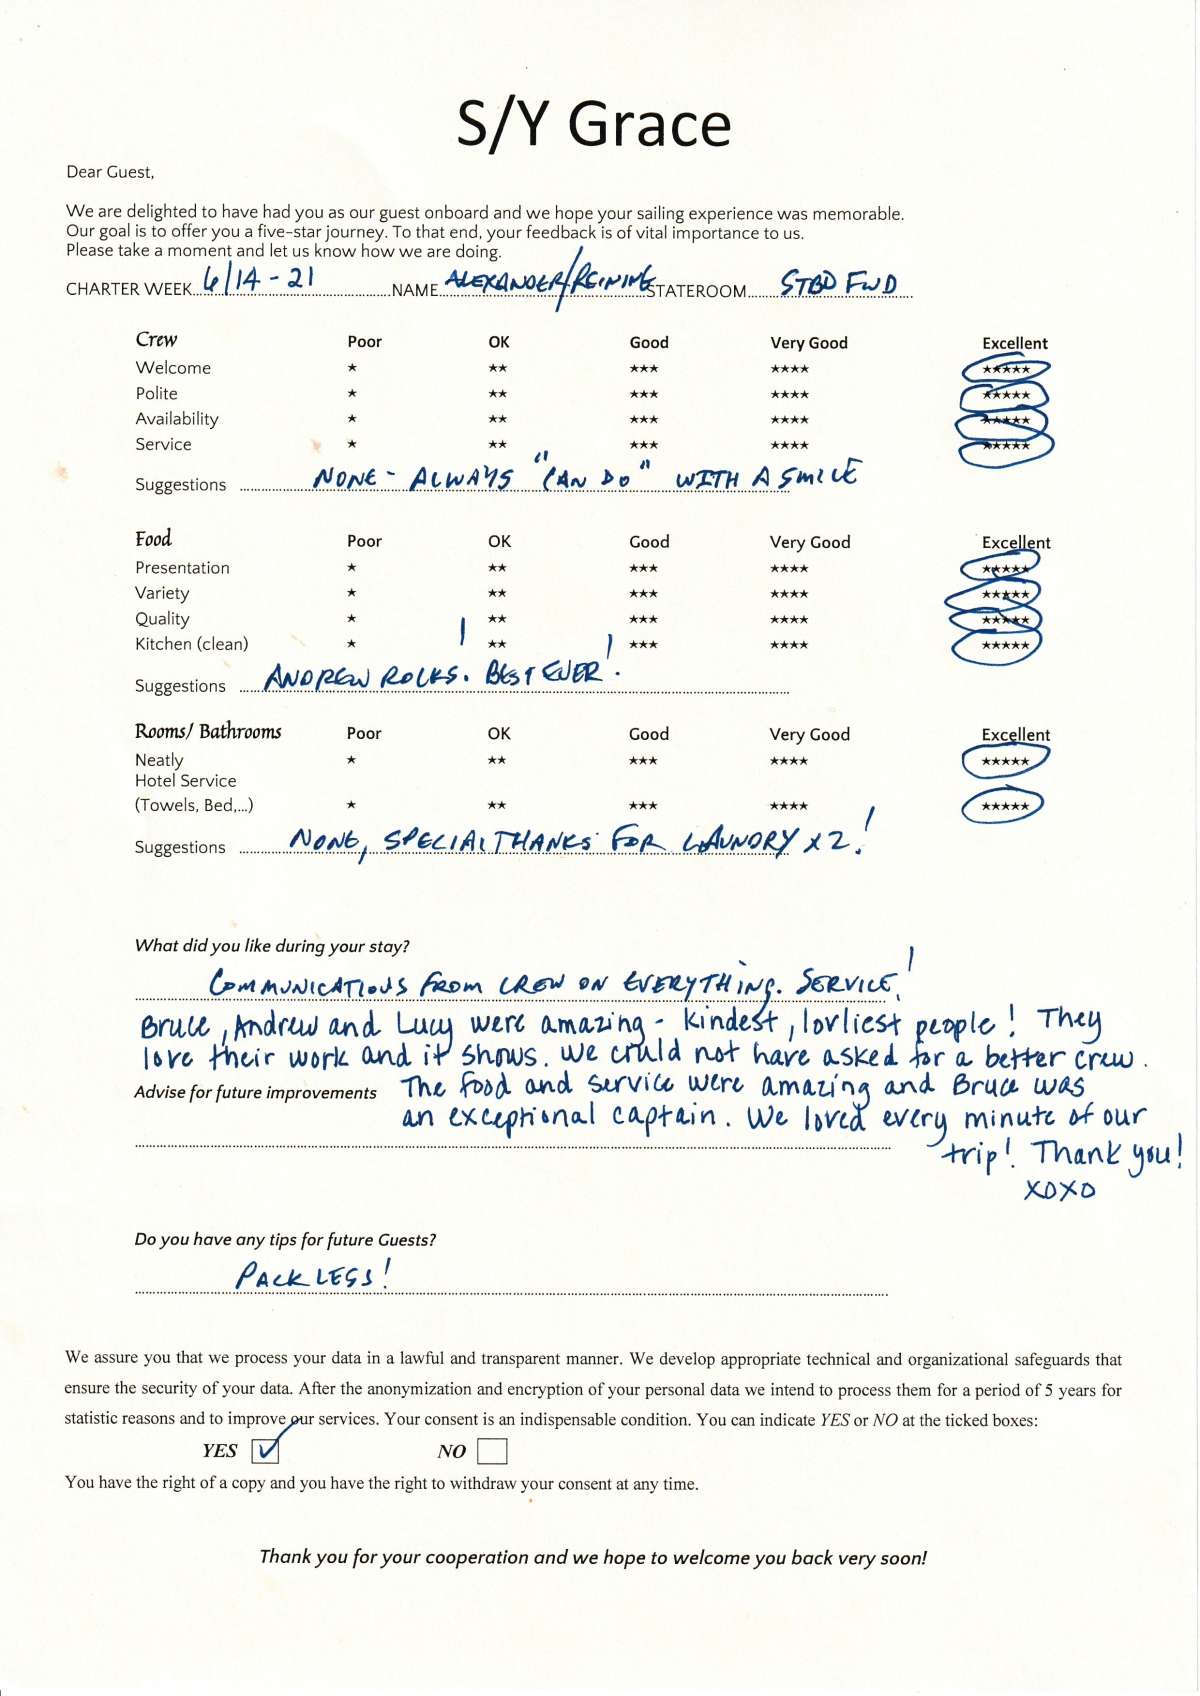 S/Y Grace
Dear Guest,
We are delighted to have had you as our guest onboard and we hope your sailing experience was memorable.
Our goal is to offer you a five-star journey. To that end, your feedback is of vital importance to us.
Please take a moment and let us know how we are doing.
CHARTER WEEK 6/14 - 21 NAME ALEXANDER/REINING STATEROOM STBD FWD
Crew Poor OK Good Very Good Excellent
Welcome ★ ★★ ★★★ ★★★★ ★★★★★
Polite ★ ★★ ★★★ ★★★★ ★★★★★
Availability ★ ★★ ★★★ ★★★★ ★★★★★
Service ★ ★★ ★★★ ★★★★ ★★★★★
Suggestions NONE - ALWAYS "CAN DO" WITH A SMILE
Food Poor OK Good Very Good Excellent
Presentation ★ ★★ ★★★ ★★★★ ★★★★★
Variety ★ ★★ ★★★ ★★★★ ★★★★★
Quality ★ ★★ ★★★ ★★★★ ★★★★★
Kitchen (clean) ★ ★★ ★★★ ★★★★ ★★★★★
Suggestions ANDREW ROCKS! BEST EVER!
Rooms/ Bathrooms Poor OK Good Very Good Excellent
Neatly ★ ★★ ★★★ ★★★★ ★★★★★
Hotel Service
(Towels, Bed,...) ★ ★★ ★★★ ★★★★ ★★★★★
Suggestions NONE, SPECIAL THANKS FOR LAUNDRY x 2!
What did you like during your stay?
COMMUNICATIONS FROM CREW ON EVERYTHING. SERVICE!
Bruce, Andrew and Lucy were amazing - kindest, lovliest people! They
love their work and it shows. We could not have asked for a better crew.
Advise for future improvements The food and service were amazing and Bruce was
an exceptional captain. We loved every minute of our
trip! Thank you!
XOXO
Do you have any tips for future Guests?
PACK LESS!
We assure you that we process your data in a lawful and transparent manner. We develop appropriate technical and organizational safeguards that
ensure the security of your data. After the anonymization and encryption of your personal data we intend to process them for a period of 5 years for
statistic reasons and to improve our services. Your consent is an indispensable condition. You can indicate YES or NO at the ticked boxes:
YES ☑ NO ☐
You have the right of a copy and you have the right to withdraw your consent at any time.
Thank you for your cooperation and we hope to welcome you back very soon!